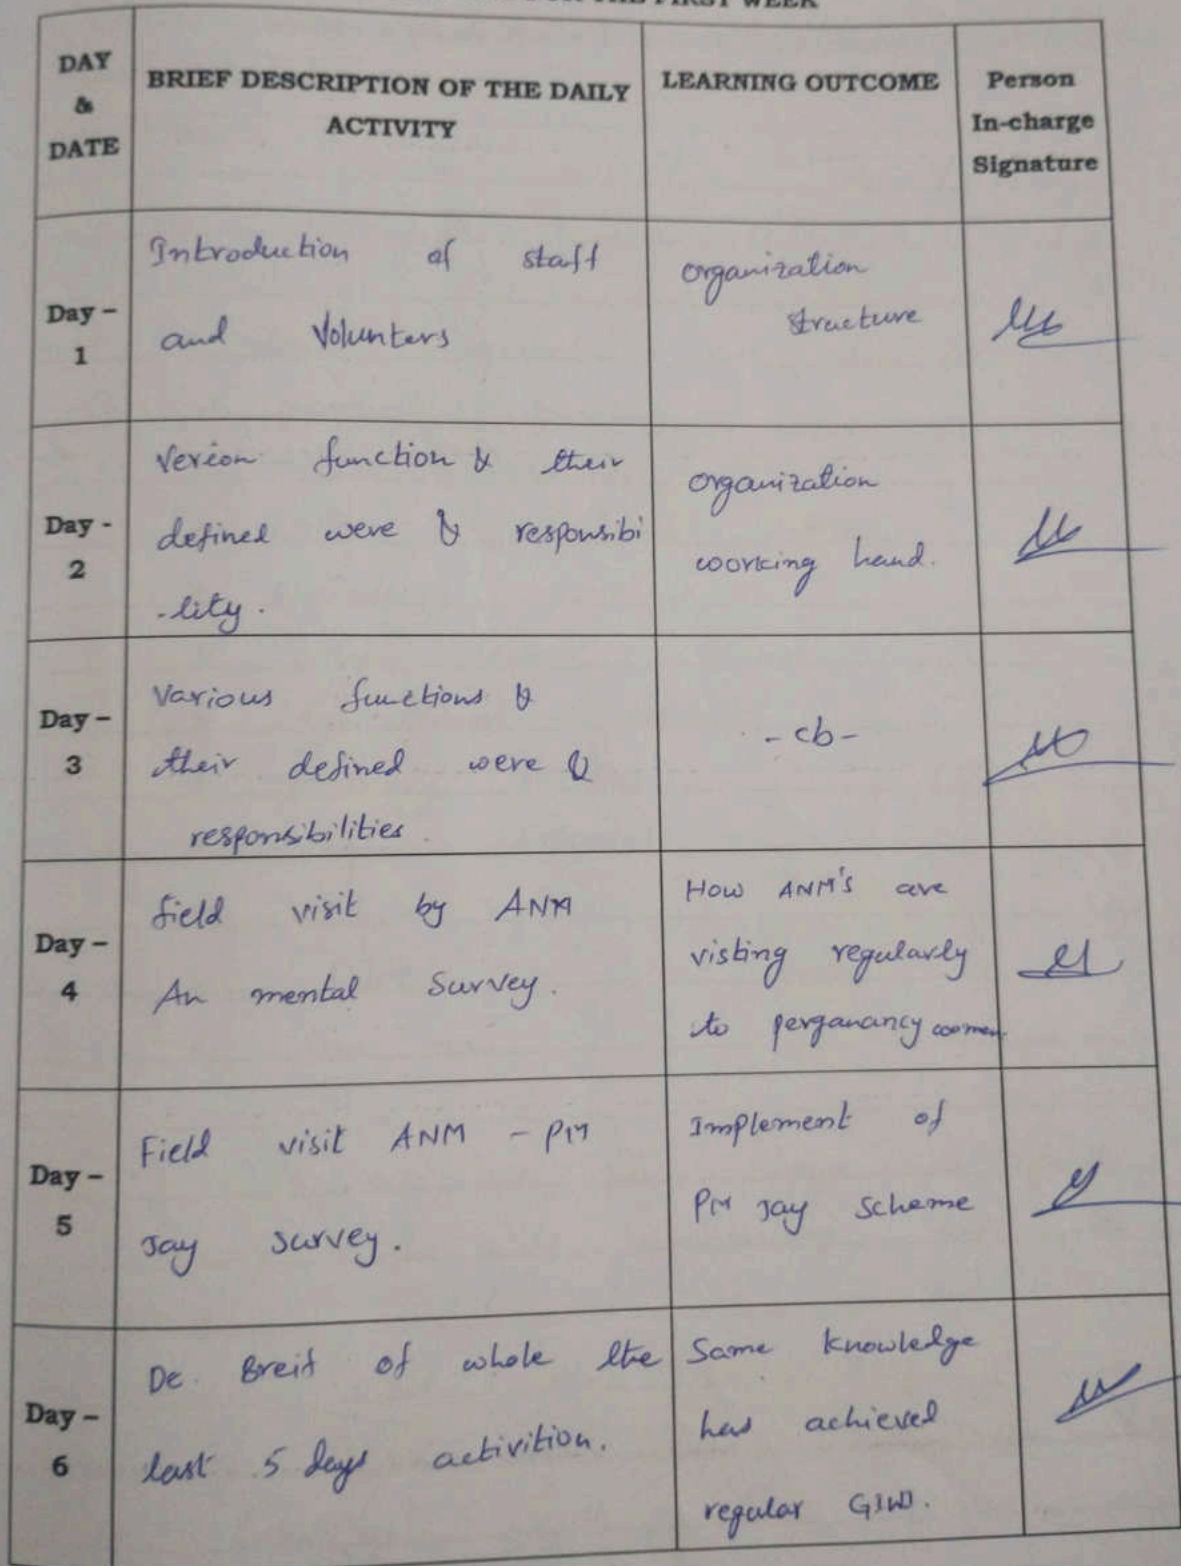 THE FIRST WEEK
DAY
&
DATE
BRIEF DESCRIPTION OF THE DAILY
ACTIVITY
LEARNING OUTCOME
Person
In-charge
Signature
Day –
1
Introduction of staff
and Volunters
organization
structure
Day -
2
function & their
defined were & responsibi
-lity.
organization
woorking hand.
Day –
3
Various functions &
their defined were &
responsibilities.
- cb -
Day –
4
field visit by ANM
An mental Survey.
How ANM's are
visting regularly
to perganancy women
Day –
5
Field visit ANM - PM
Jay survey.
Implement of
PM Jay Scheme
Day –
6
De Breif of whole the
last 5 days activition.
Same knowledge
has achieved
regular